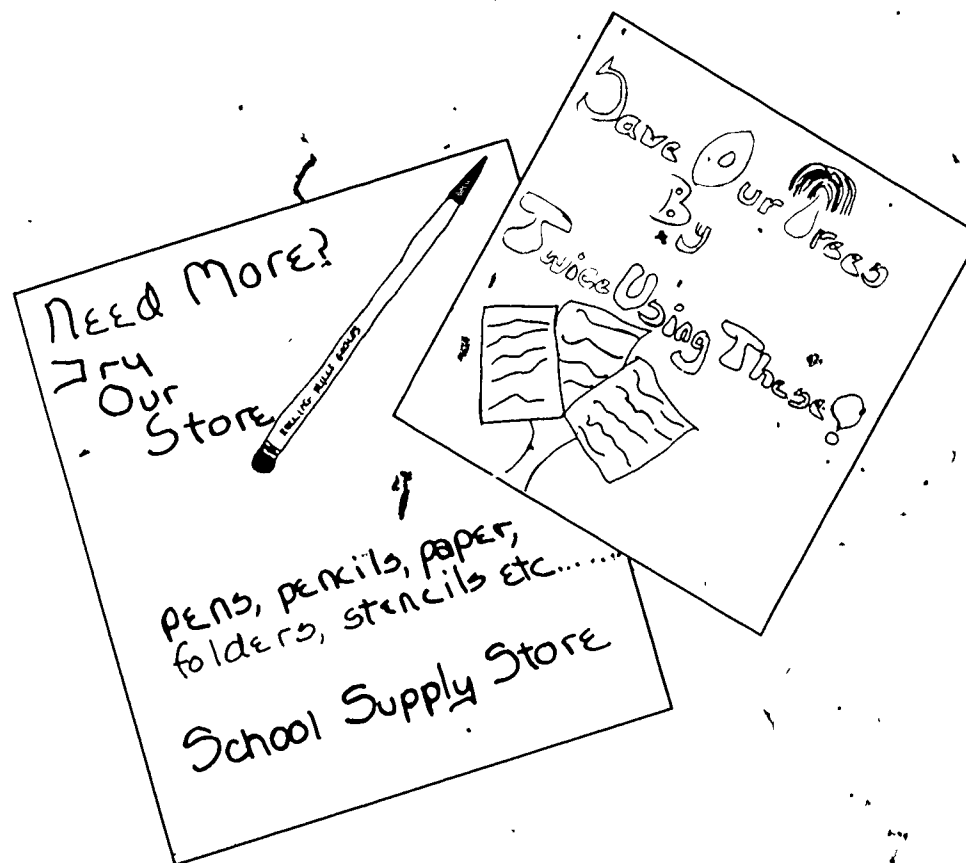 Need More?
Try
Our
Store
pens, pencils, paper,
folders, stencils etc......
School Supply Store
Save Our Trees
By
Twice Using These!